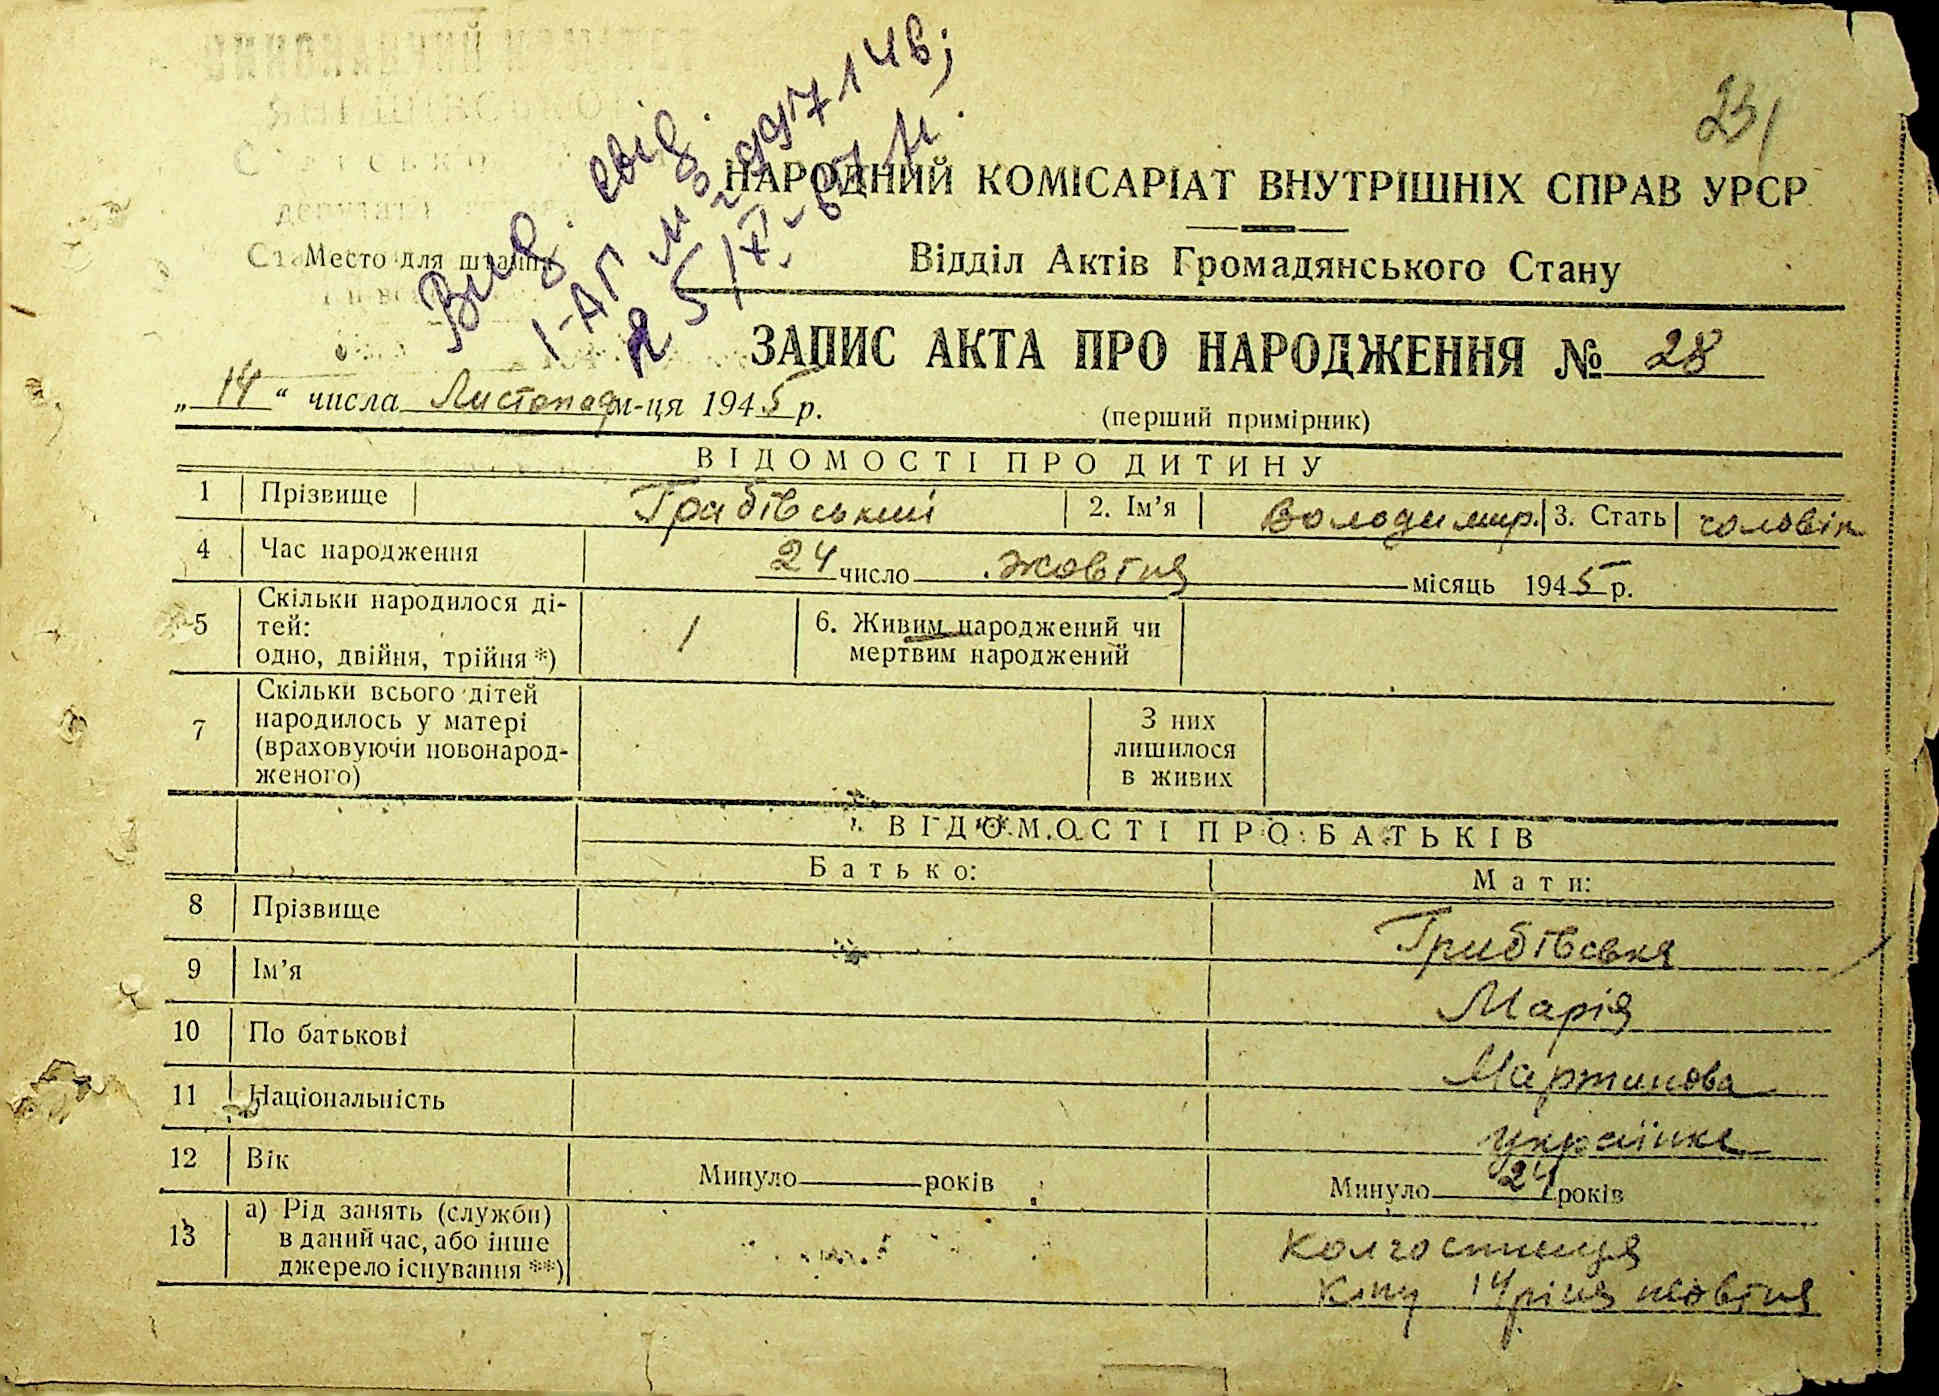 231
Вид. свід.
I-АП № 299714 в;
НАРОДНИЙ КОМІСАРІАТ ВНУТРІШНІХ СПРАВ УРСР
Відділ Актів Громадянського Стану
Место для штампу
ЗАПИС АКТА ПРО НАРОДЖЕННЯ № 28
„14“ числа Листопад м-ця 1945 р.
(перший примірник)
ВІДОМОСТІ ПРО ДИТИНУ
1 Прізвище Грабівський 2. Ім’я Володимир. 3. Стать чоловіч
4 Час народження 24 число жовтня місяць 1945 р.
5 Скільки народилося ді-
тей:
одно, двійня, трійня *) 1
6. Живим народжений чи
мертвим народжений
7 Скільки всього дітей
народилось у матері
(враховуючи новонарод-
женого)
З них
лишилося
в живих
ВІДОМОСТІ ПРО БАТЬКІВ
Батько: Мати:
8 Прізвище Грабівська
9 Ім’я Марія
10 По батькові Мартинова
11 Національність українка
12 Вік Минуло років Минуло 24 років
13 а) Рід занять (служби)
в даний час, або інше
джерело існування **)
Колгоспниця
к-пу 14 річя жовтня